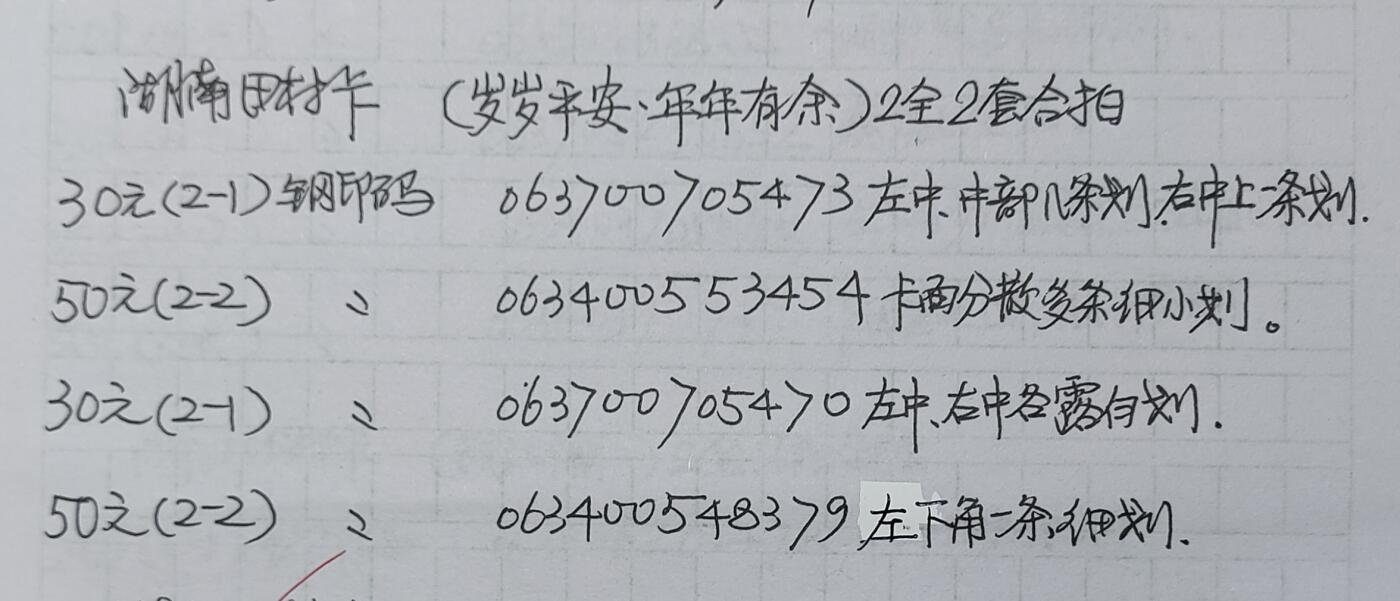 湖南田村卡 (岁岁平安·年年有余)2全2套合拍
30元(2-1)钢印码 063700705473左中、中部几条划,右中上一条划.
50元(2-2) 〃 063400553454卡面分散多条细小划。
30元(2-1) 〃 063700705470左中、右中各露白划.
50元(2-2) 〃 063400548379左下角一条细划.